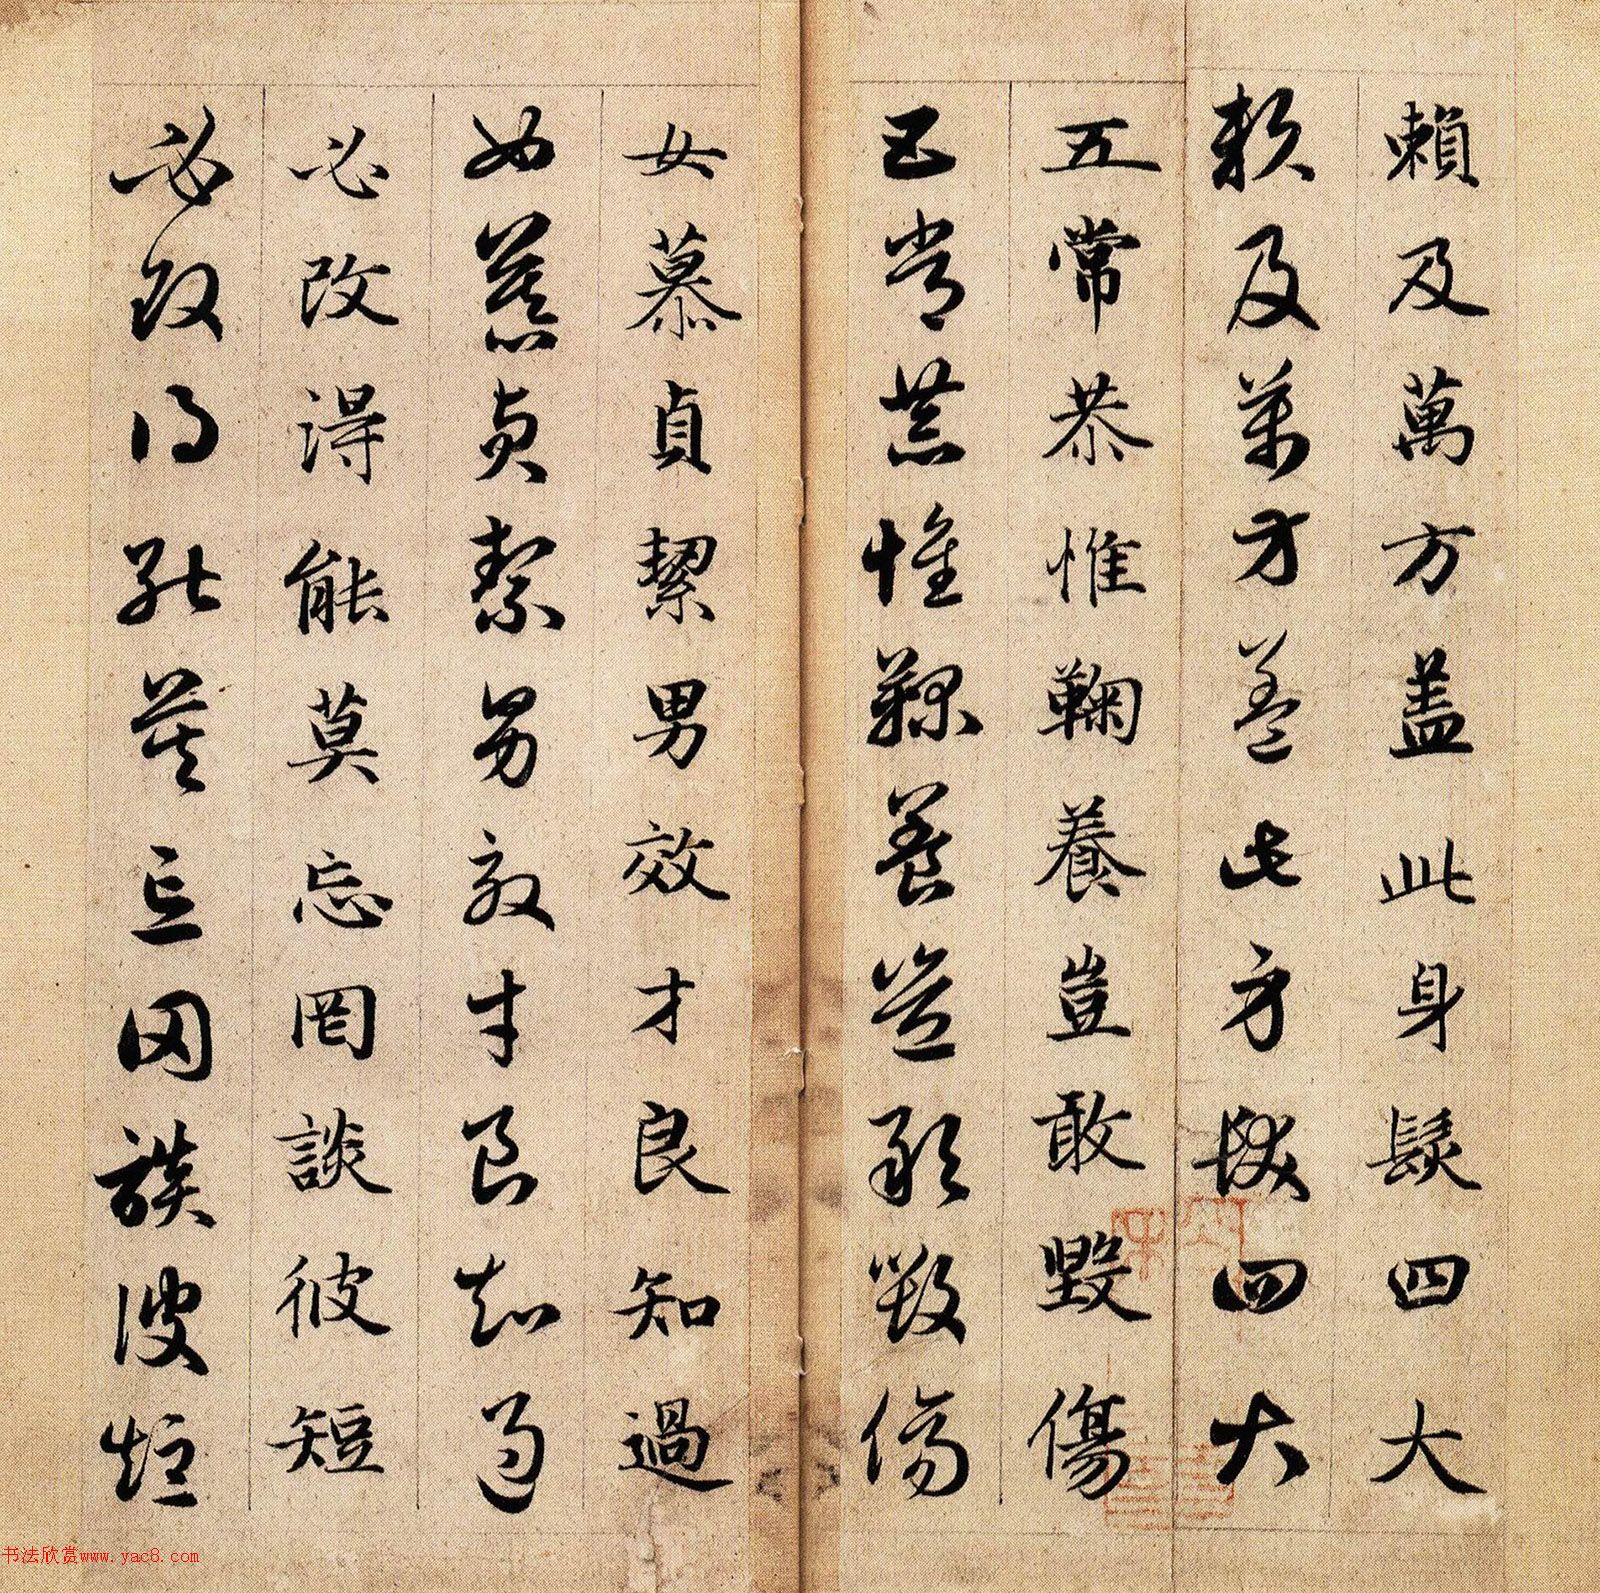 賴及萬方盖此身髮四大
賴及萬方盖此身髮四大
五常恭惟鞠養豈敢毀傷
五常恭惟鞠養豈敢毀傷
女慕貞絜男效才良知過
女慕貞絜男效才良知過
必改得能莫忘罔談彼短
必改得能莫忘罔談彼短
书法欣赏www.yac8.com